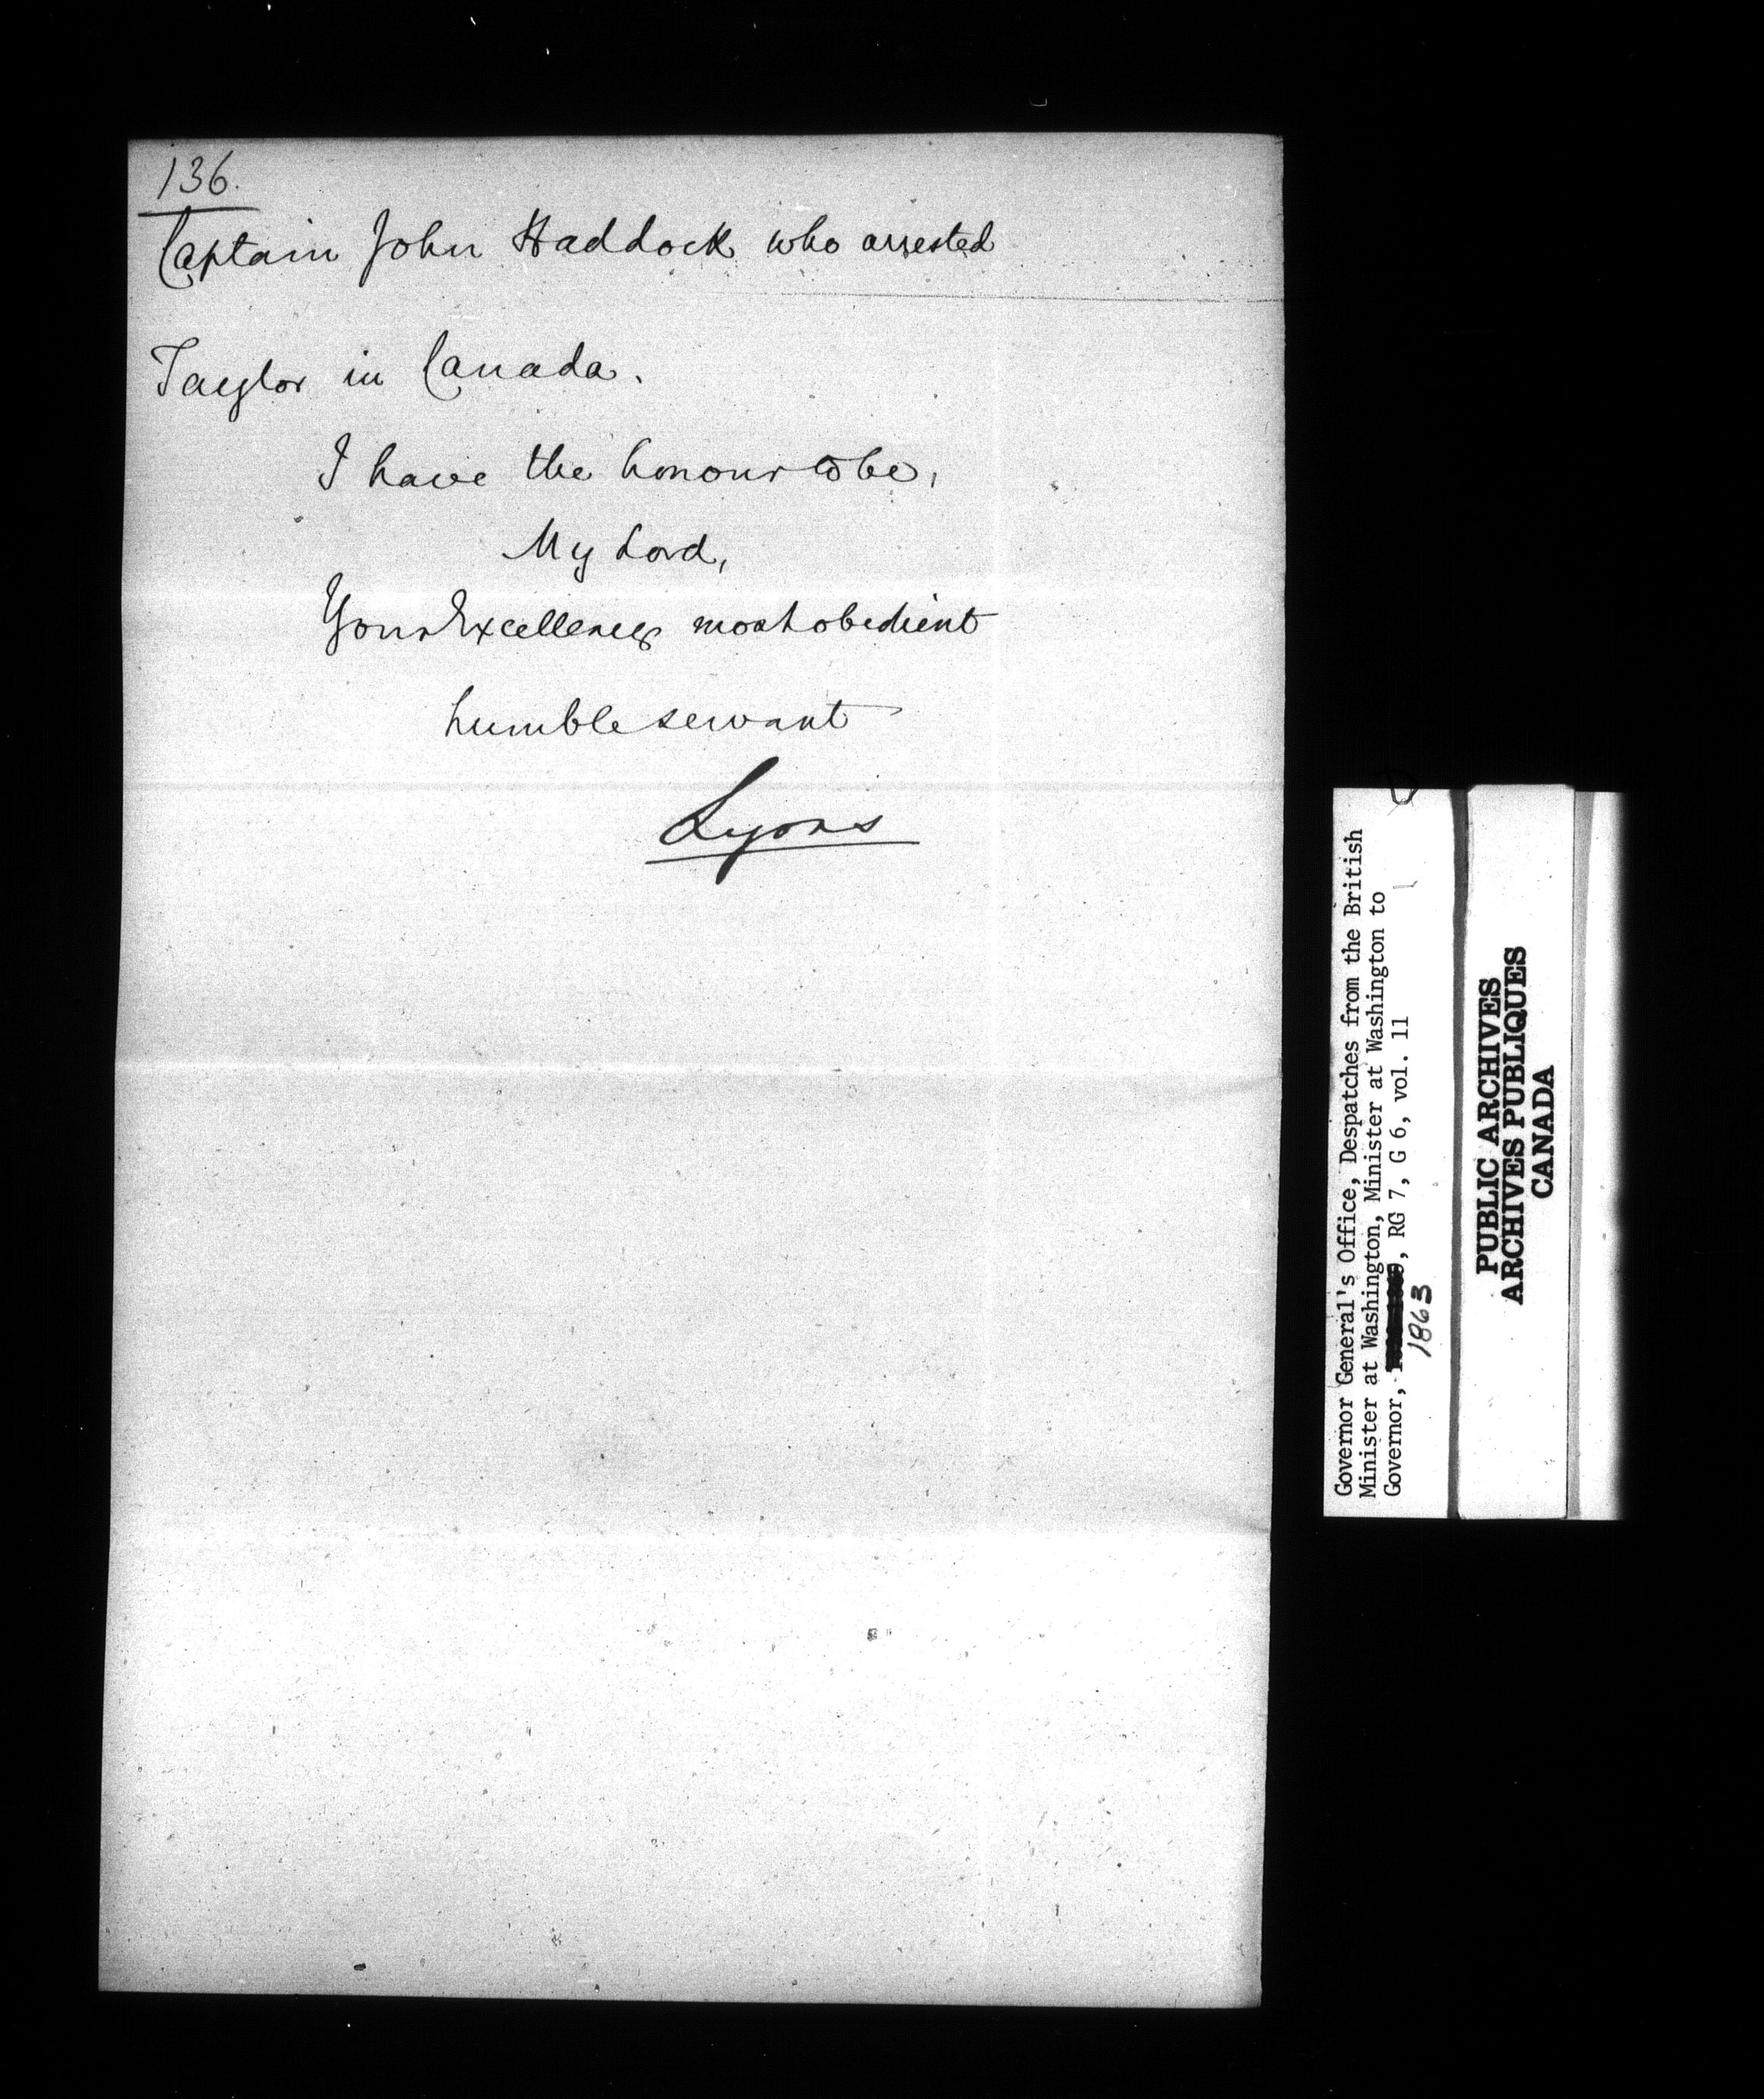 136.
Captain John Haddock who arrested
Taylor in Canada.
I have the honour to be,
My Lord,
Your Excellency's most obedient
humble servant
Lyons
Governor General's Office, Despatches from the British
Minister at Washington, Minister at Washington to
Governor, , RG 7, G 6, vol. 11
1863
PUBLIC ARCHIVES
ARCHIVES PUBLIQUES
CANADA